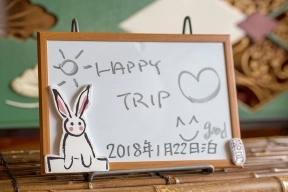 HAPPY
TRIP
good
2018年1月22日泊